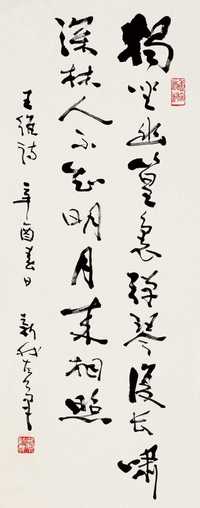 獨坐幽篁裏彈琴復长嘯
深林人不知明月來相照
王維詩 辛酉春日 新我左筆